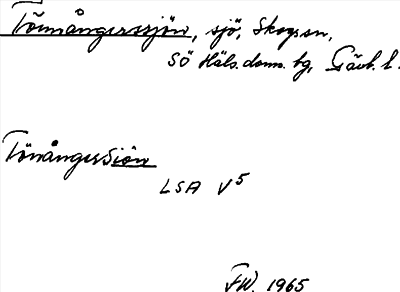 Tönnångerssjön, sjö, Skogs sn,
SÖ Häls. doms. tg, Gävl. l.
Tönångerssjön
LSA V5
FW. 1965